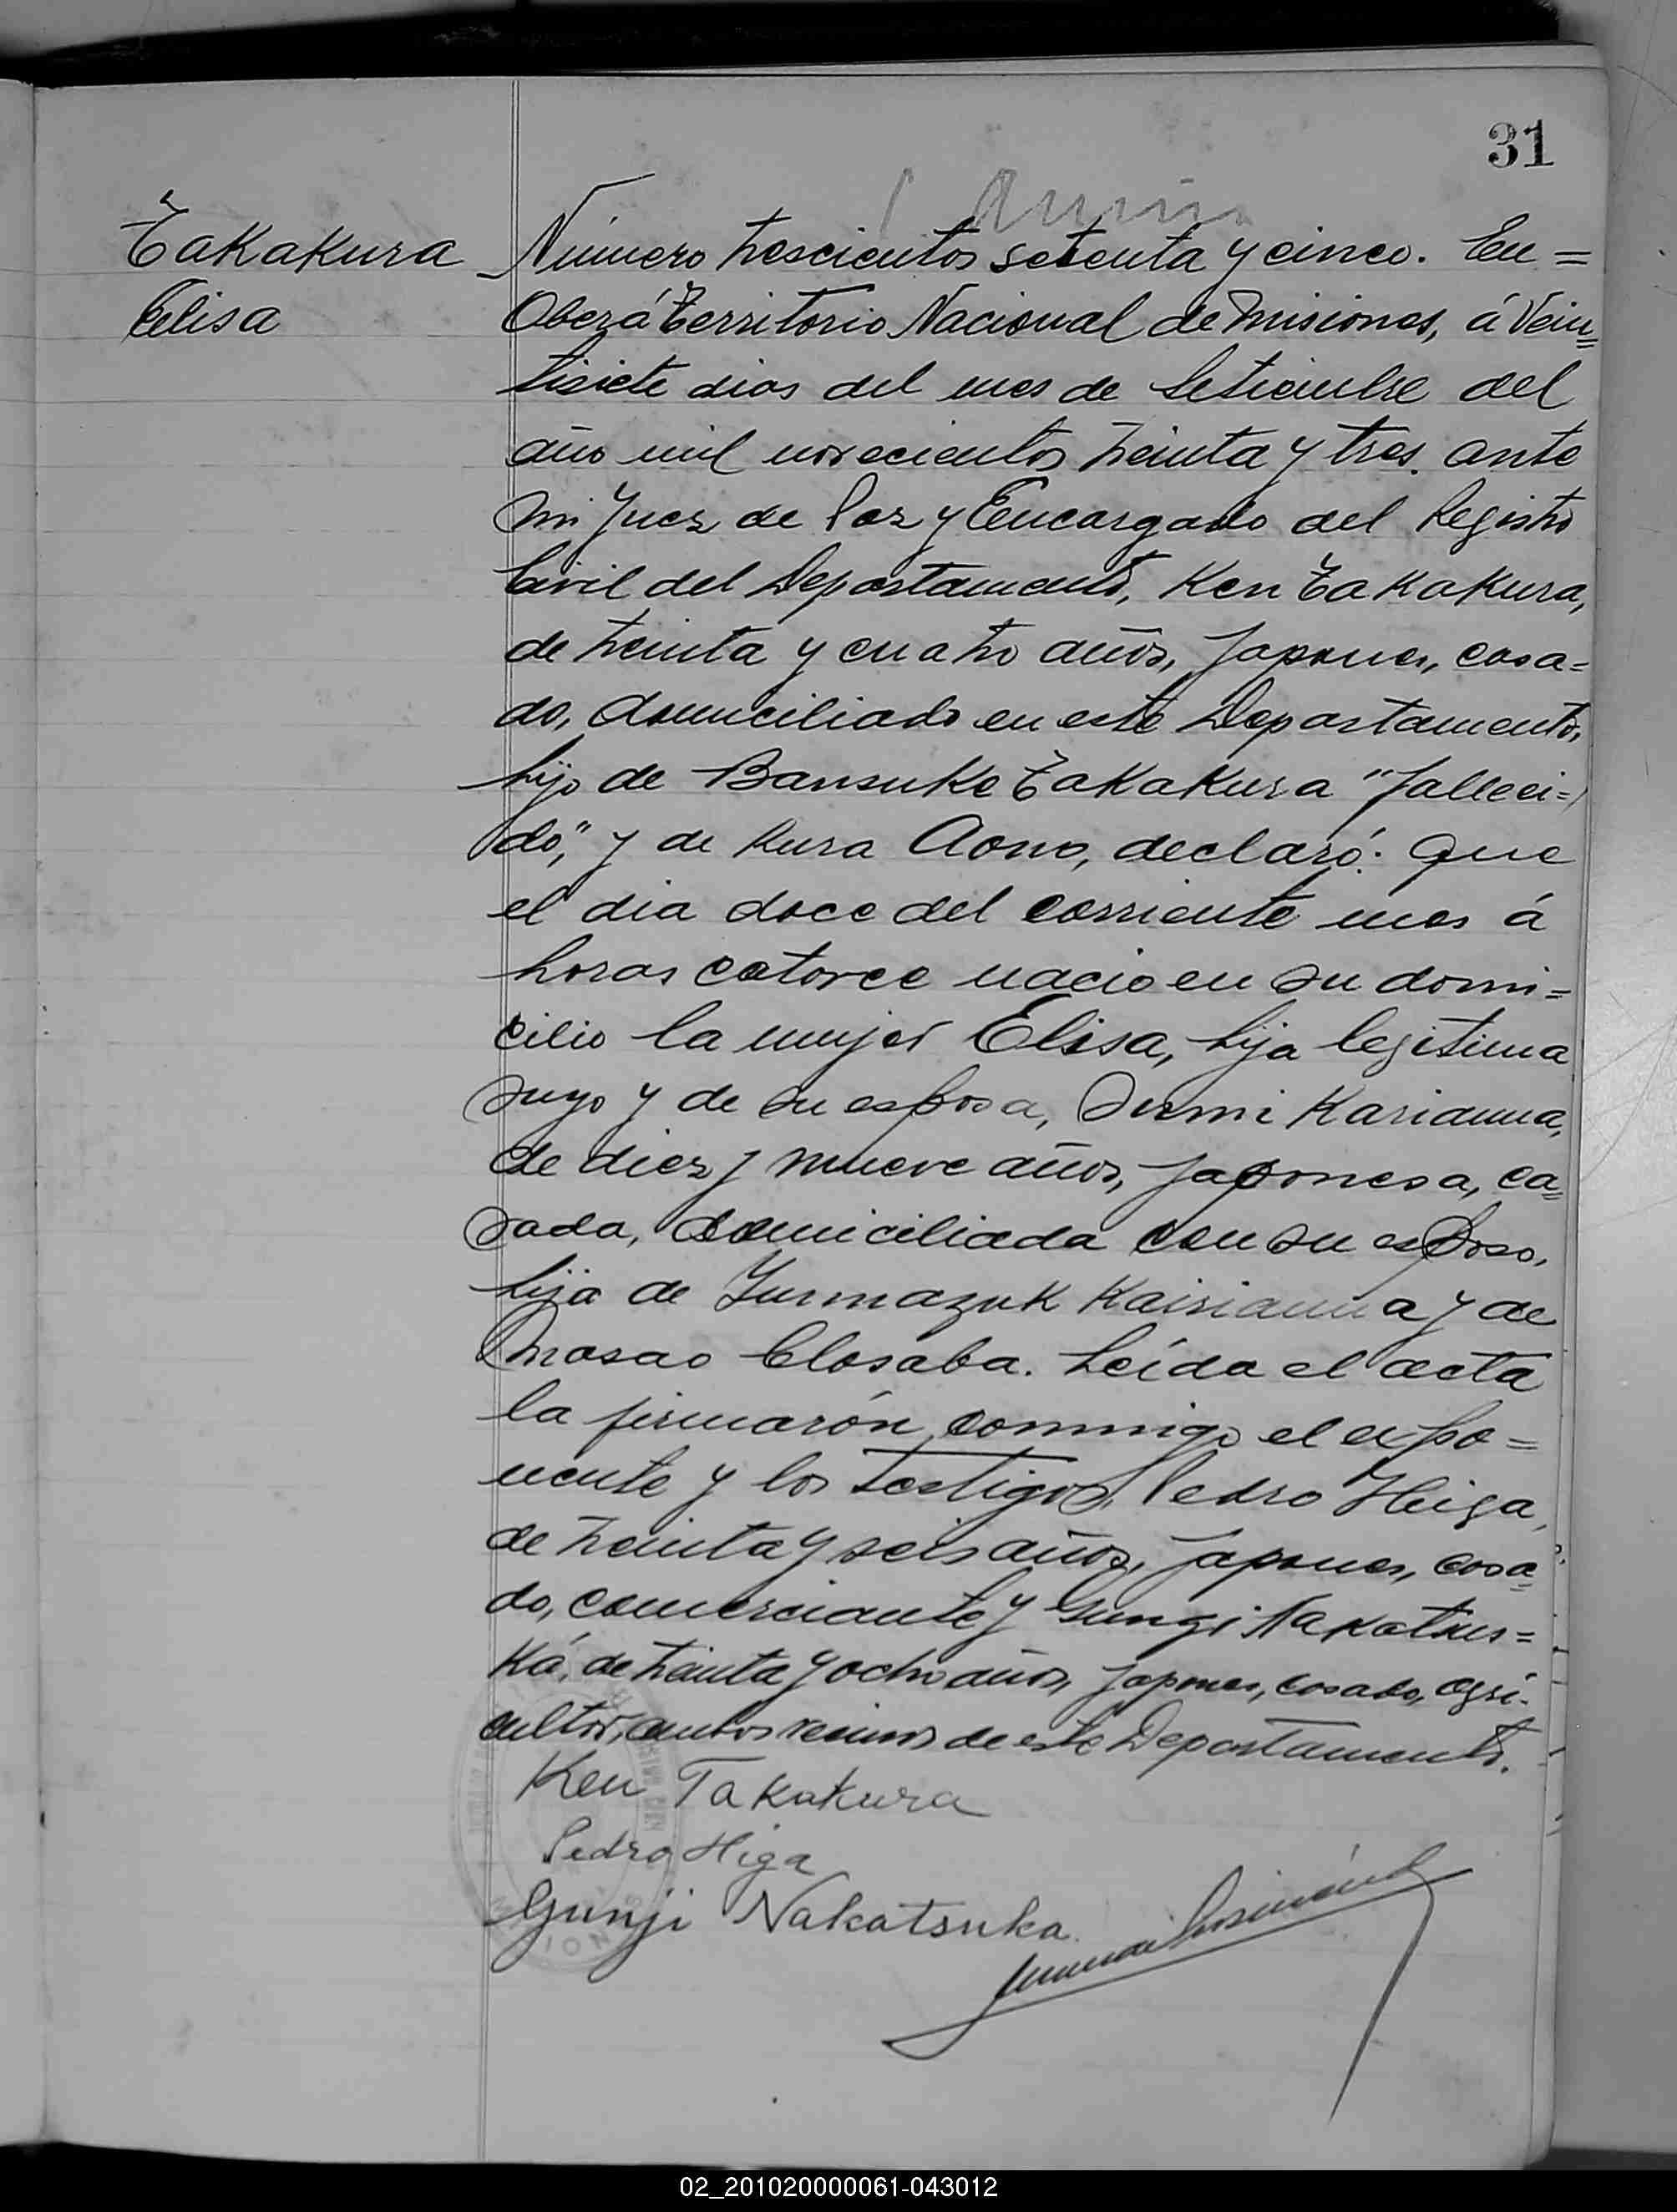 31
Takakura
Elisa
Número trescientos setenta y cinco. En=
Oberá Territorio Nacional de Misiones, á Vein=
tisiete dias del mes de Setiembre del
año mil novecientos treinta y tres. ante
mi Juez de Paz y Encargado del Registro
Civil del Departamento, Ken Takakura,
de treinta y cuatro años, Japones, casa=
do, domiciliado en este Departamento,
hijo de Bansuke Takakura "falleci=
do", y de Kura Aono, declaró: Que
el dia doce del corriente mes á
horas catorce nacio en su domi=
cilio la mujer Elisa, hija legitima
suyo y de su esposa, Sumi Karianna,
de diez y nueve años, Japonesa, ca=
sada, domiciliada con su esposo,
hija de Yunmazuk Kairianna y de
Masao Closaba. Leída el acta
la firmarón conmigo el expo=
nente y los testigos, Pedro Heiga,
de treinta y seis años, Japones, casa=
do, comerciante y Gungi Nakatsus=
ká, de treinta y ocho años, Japones, casado, agri-
cultor, ambos vecinos de este Departamento.
Ken Takakura
Pedro Higa
Gunji Nakatsuka
02_201020000061-043012